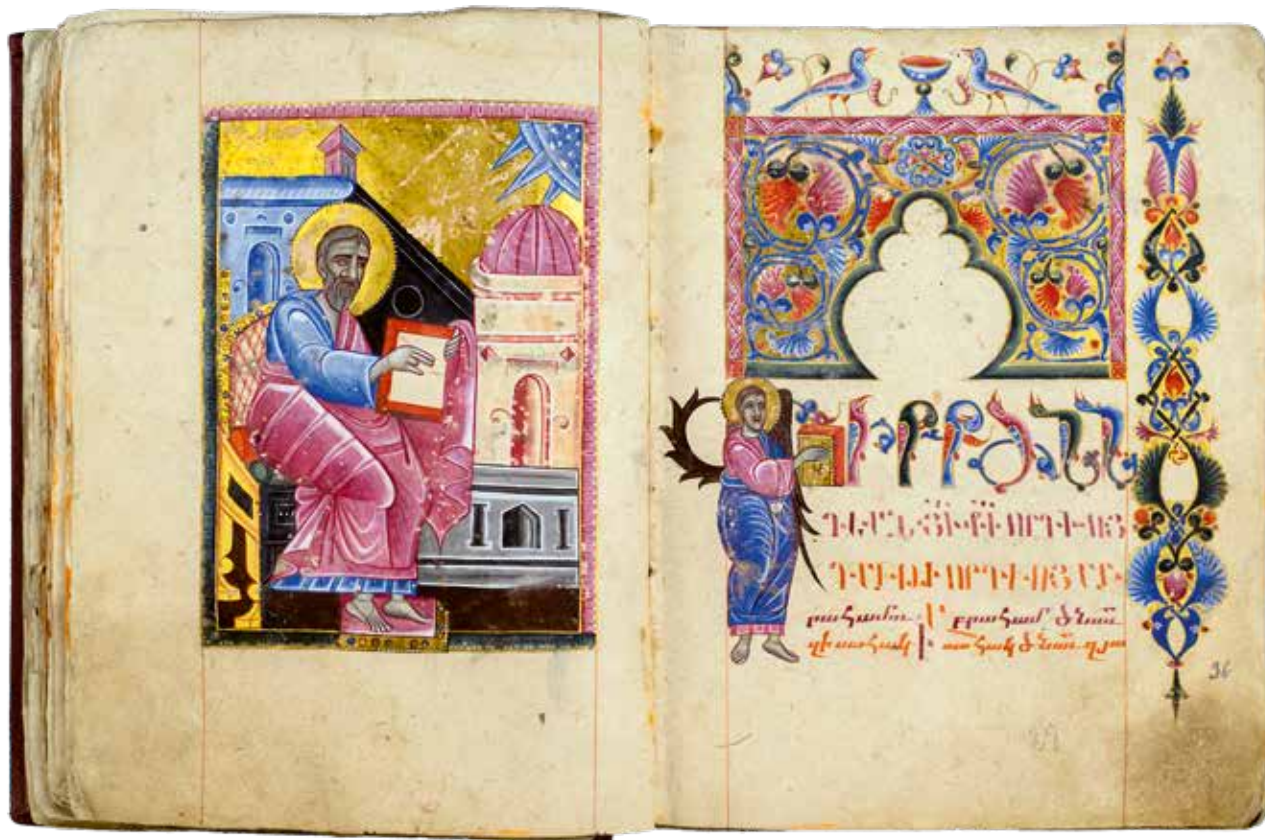 ԳԻՐՔ ԾՆՆ
ԴԵԱՆ ՅԻ ՔԻ ՈՐԴՒՈՅ
ԴԱՒԹԻ ՈՐԴՒՈՅ ԱԲ
րահամու. Աբրահամ ծնաւ
զիսահակ. Իսահակ ծնաւ զյա
36